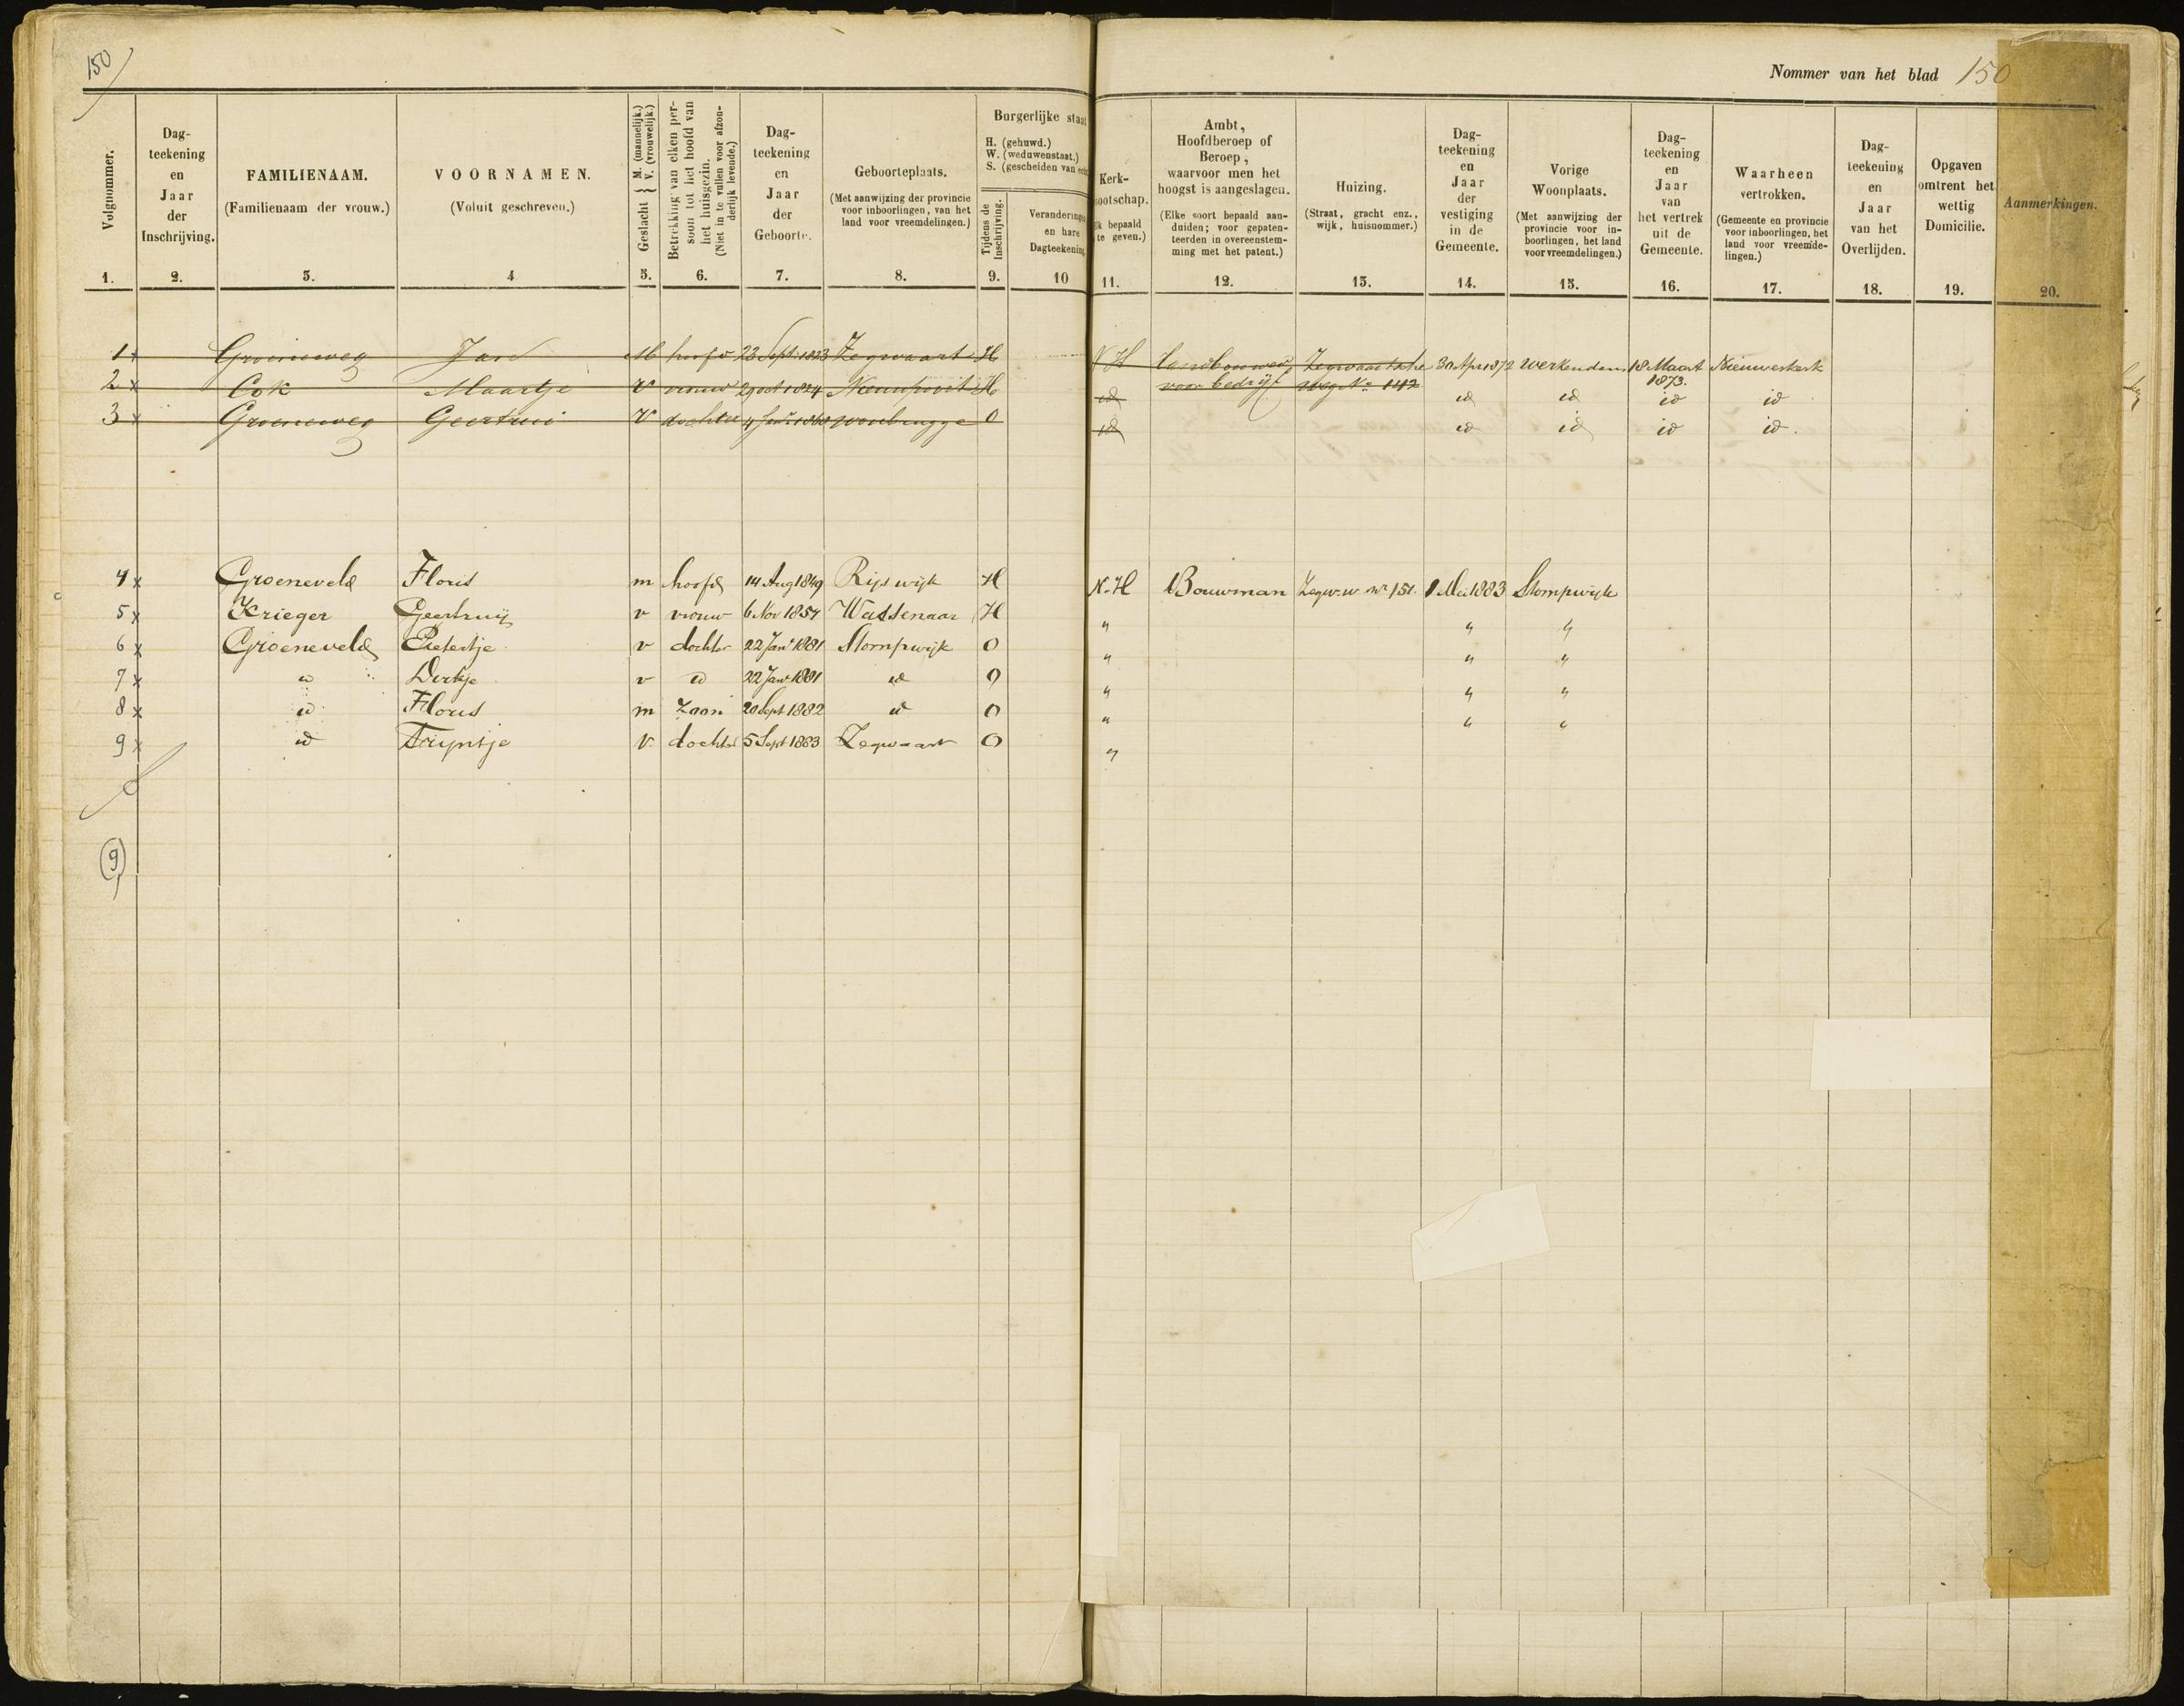 150
Nommer van het blad 150
Volgnommer.
Dag-
teekening
en
Jaar
der
Inschrijving.
FAMILIENAAM.
(Familienaam der vrouw.)
VOORNAMEN.
(Voluit geschreven.)
Geslacht { M. (mannelijk.)
V. (vrouwelijk.)
Betrekking van elken per-
soon tot het hoofd van
het huisgezin.
(Niet in te vullen voor afzon-
derlijk levende.)
Dag-
teekening
en
Jaar
der
Geboorte.
Geboorteplaats.
(Met aanwijzing der provincie
voor inboorlingen, van het
land voor vreemdelingen.)
Burgerlijke staat
H. (gehuwd.)
W. (weduwenstaat.)
S. (gescheiden van
Tijdens de
Inschrijving.
Veranderingen
en hare
Dagteekening
Kerk-
nootschap.
bepaald
te geven.)
Ambt,
Hoofdberoep of
Beroep,
waarvoor men het
hoogst is aangeslagen.
(Elke soort bepaald aan-
duiden; voor gepaten-
teerden in overeenstem-
ming met het patent.)
Huizing.
(Straat, gracht enz.,
wijk, huisnommer.)
Dag-
teekening
en
Jaar
der
vestiging
in de
Gemeente.
Vorige
Woonplaats.
(Met aanwijzing der
provincie voor in-
boorlingen, het land
voor vreemdelingen.)
Dag-
teekening
en
Jaar
van
het vertrek
uit de
Gemeente.
Waarheen
vertrokken.
(Gemeente en provincie
voor inboorlingen, het
land voor vreemde-
lingen.)
Dag-
teekening
en
Jaar
van het
Overlijden.
Opgaven
omtrent het
wettig
Domicilie.
Aanmerkingen.
1. 2. 3. 4 5. 6. 7. 8. 9. 10 11. 12. 13. 14. 15. 16. 17. 18. 19. 20.
1 x Groeneweg Jan M hoofd 23 Sept 1823 Zegwaart H N H Landbouwer Zegwaartsche 30 Apr 1872 Werkendam 18 Maart Nieuwerkerk
voor bedrijf weg No 142 1873.
2 x Cok Maartje V vrouw 29 oct 1824 Nieuwpoort H id id id id id
3 x Groeneweg Geertrui V dochter 4 1868 Woubrugge O id id id id id
4 x Groeneveld Floris m hoofd 14 Aug 1849 Rijswijk H N. H Bouwman Zegw. w. no 151. 1 Mei 1883 Stompwijk
5 x Krieger Geertruij v vrouw 6 Nov 1854 Wassenaar H " " "
6 x Groeneveld Pietertje v dochter 22 Jan 1881 Stompwijk O " " "
7 x id Dirkje v id 22 Jan 1881 id O " " "
8 x id Floris m zoon 20 Sept 1882 id O " " "
9 x id Trijntje v. dochter 5 Sept 1883 Zegwaart O "
9